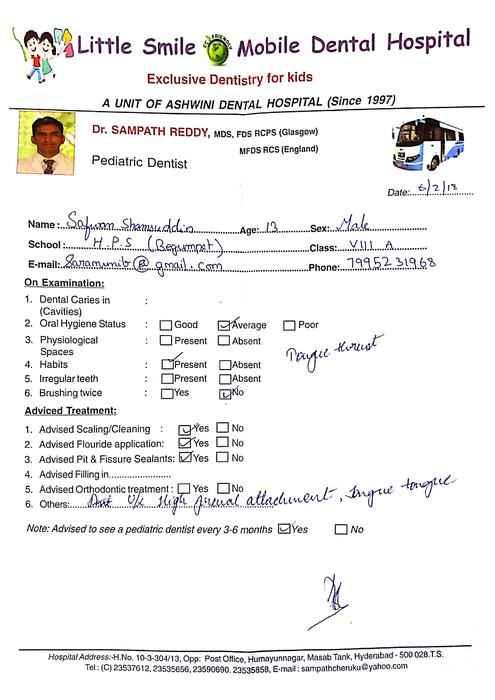 Little Smile Mobile Dental Hospital
ECO FRIENDLY
Exclusive Dentistry for kids
A UNIT OF ASHWINI DENTAL HOSPITAL (Since 1997)
Dr. SAMPATH REDDY, MDS, FDS RCPS (Glasgow)
MFDS RCS (England)
Pediatric Dentist
Date: 6/2/13
Name: Safwan Shamsuddin Age: 13 Sex: Male
School: H.P.S (Begumpet) Class: VIII A
E-mail: Saramunib@gmail.com Phone: 7995231968
On Examination:
1. Dental Caries in :
(Cavities)
2. Oral Hygiene Status : Good Average Poor
3. Physiological : Present Absent
Spaces
Tongue thrust
4. Habits : Present Absent
5. Irregular teeth : Present Absent
6. Brushing twice : Yes No
Adviced Treatment:
1. Advised Scaling/Cleaning : Yes No
2. Advised Flouride application: Yes No
3. Advised Pit & Fissure Sealants: Yes No
4. Advised Filling in
5. Advised Orthodontic treatment : Yes No
6. Others: High frenal attachment, tongue
Note: Advised to see a pediatric dentist every 3-6 months Yes No
Hospital Address:-H.No. 10-3-304/13, Opp: Post Office, Humayunnagar, Masab Tank, Hyderabad - 500 028.T.S.
Tel: (C) 23537612, 23535656, 23590690, 23535858, E-mail : sampathcheruku@yahoo.com